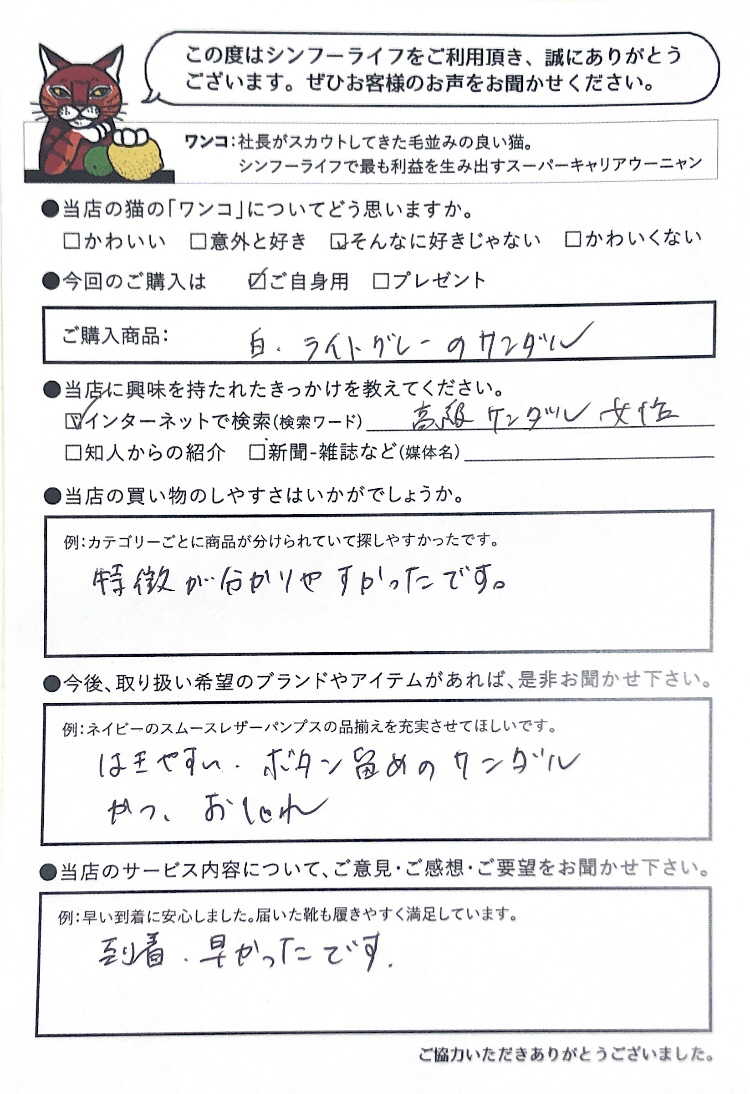 この度はシンフーライフをご利用頂き、誠にありがとう
ございます。ぜひお客様のお声をお聞かせください。
ワンコ：社長がスカウトしてきた毛並みの良い猫。
シンフーライフで最も利益を生み出すスーパーキャリアウーニャン
●当店の猫の「ワンコ」についてどう思いますか。
□かわいい □意外と好き ☑そんなに好きじゃない □かわいくない
●今回のご購入は ☑ご自身用 □プレゼント
ご購入商品： 白・ライトグレーのサンダル
●当店に興味を持たれたきっかけを教えてください。
☑インターネットで検索(検索ワード) 高級 サンダル 女性
□知人からの紹介 □新聞-雑誌など(媒体名)
●当店の買い物のしやすさはいかがでしょうか。
例：カテゴリーごとに商品が分けられていて探しやすかったです。
特徴が分かりやすかったです。
●今後、取り扱い希望のブランドやアイテムがあれば、是非お聞かせ下さい。
例：ネイビーのスムースレザーパンプスの品揃えを充実させてほしいです。
はきやすい・ボタン留めのサンダル
かつ、おしゃれ
●当店のサービス内容について、ご意見・ご感想・ご要望をお聞かせ下さい。
例：早い到着に安心しました。届いた靴も履きやすく満足しています。
到着、早かったです.
ご協力いただきありがとうございました。